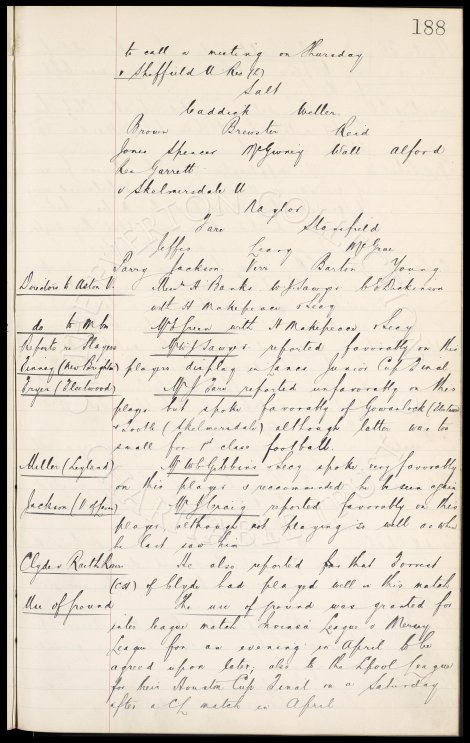 188
to call a meeting on Thursday
v Sheffield U Res (h)
Salt
Caddick Weller
Brown Brewster Reid
Jones Spencer McGivney Wall Alford
Res Garrett
v Skelmersdale U
Naylor
Fare Stansfield
Jeffes Leary McGrae
Parry Jackson Virr Barton Young
Directors to Aston V. Messrs A Banks W J Sawyer B C Dickinson
with H Makepeace & Secy
do to M Mr Green with H Makepeace & Secy
Reports re Players Mr W J Sawyer reported favorably on this
(New Brighton) players display in Lancs Junior Cup Final
Fryer (Fleetwood) Mr J Fare reported unfavorably on this
player but spoke favorably of Gowenlock (Fleetwood
& (Skelmersdale) although latter was too
small for 1st class football.
Miller (Leyland) Mr W C Gibbins & Secy spoke very favorably
on this player & recommended he be seen again
Jackson (Q of South) Mr J Craig reported favorably on this
player although not playing so well as when
he last saw him
Clyde v Raith Rov He also reported that Forrest
(CH) of Clyde had played well in this match
Use of Ground The use of ground was granted for
inter league match League v Mersey
League for an evening in April to be
agreed upon later, also to the Lpool League
for their Houston Cup Final on a Saturday
after a CL match in April